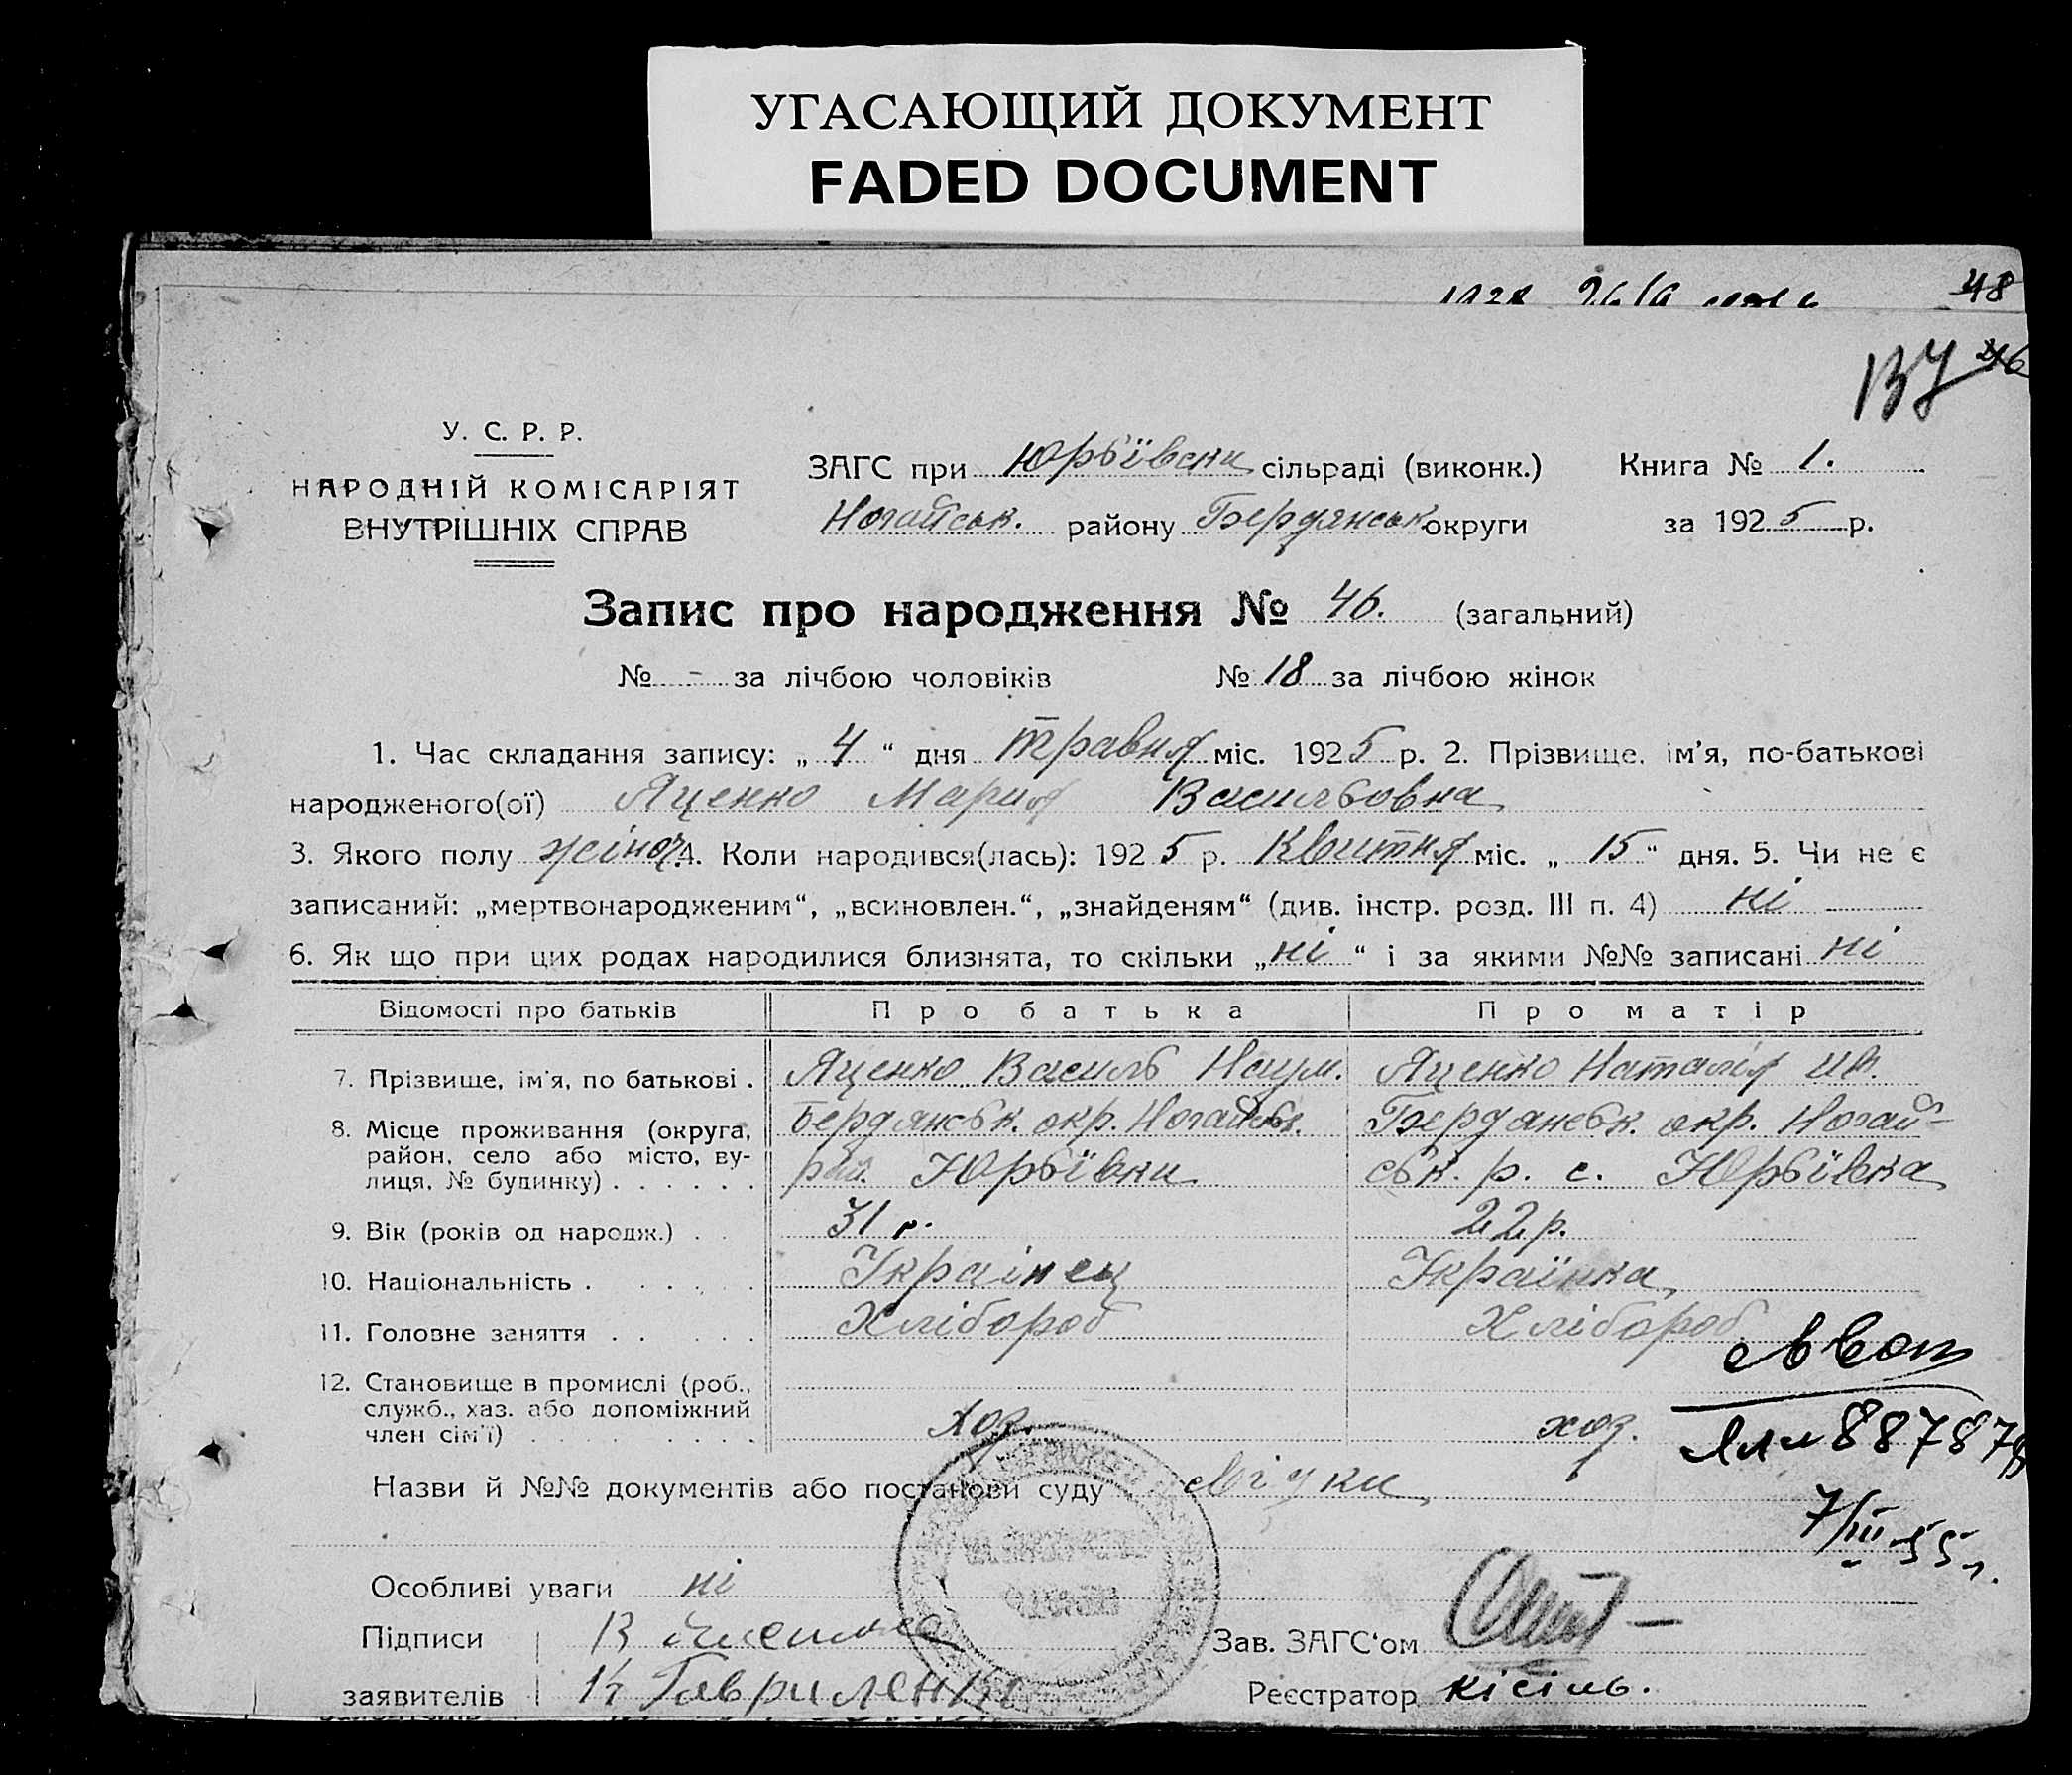 УГАСАЮЩИЙ ДОКУМЕНТ
FADED DOCUMENT
48
137 46
У. С. Р. Р.
НАРОДНІЙ КОМІСАРІЯТ
ВНУТРІШНІХ СПРАВ
ЗАГС при Юрьївськ сільраді (виконк.) Книга № 1.
Ногайськ. району Бердянськ округи за 1925 р.
Запис про народження № 46. (загальний)
№ - за лічбою чоловіків № 18 за лічбою жінок
1. Час складання запису: „ 4 “ дня травня міс. 1925 р. 2. Прізвище, ім'я, по-батькові
народженого(ої) Яценко Мария Васильовна
3. Якого полу жіноч. 4. Коли народився(лась): 1925 р. Квитня міс. „ 15 “ дня. 5. Чи не є
записаний: „мертвонародженим“, „всиновлен.“, „знайденям“ (див. інстр. розд. III п. 4) ні
6. Як що при цих родах народилися близнята, то скільки „ ні “ і за якими №№ записані ні
Відомості про батьків Про батька Про матір
7. Прізвище, ім'я, по батькові . Яценко Василь Наум. Яценко Наталія Ив.
8. Місце проживання (округа, Бердянськ. окр. Ногайськ. Бердянськ. окр. Ногай-
район, село або місто, ву- Юрьївки ськ. р. с. Юрьївка
лиця, № будинку) . . . . . .
9. Вік (років од народж.) . . 31 р. 22 р.
10. Національність . . . . . Українец Українка
11. Головне заняття . . . . . Хлібороб Хлібороб
12. Становище в промислі (роб.,
служб., хаз. або допоміжний хоз. хоз.
член сім'ї) . . . . . . . . .
887878
Назви й №№ документів або постанови суду свідки
7/III 55 г.
Особливі уваги ні
Підписи
Зав. ЗАГС'ом
заявителів К Гавриленко Реєстратор кісіль.